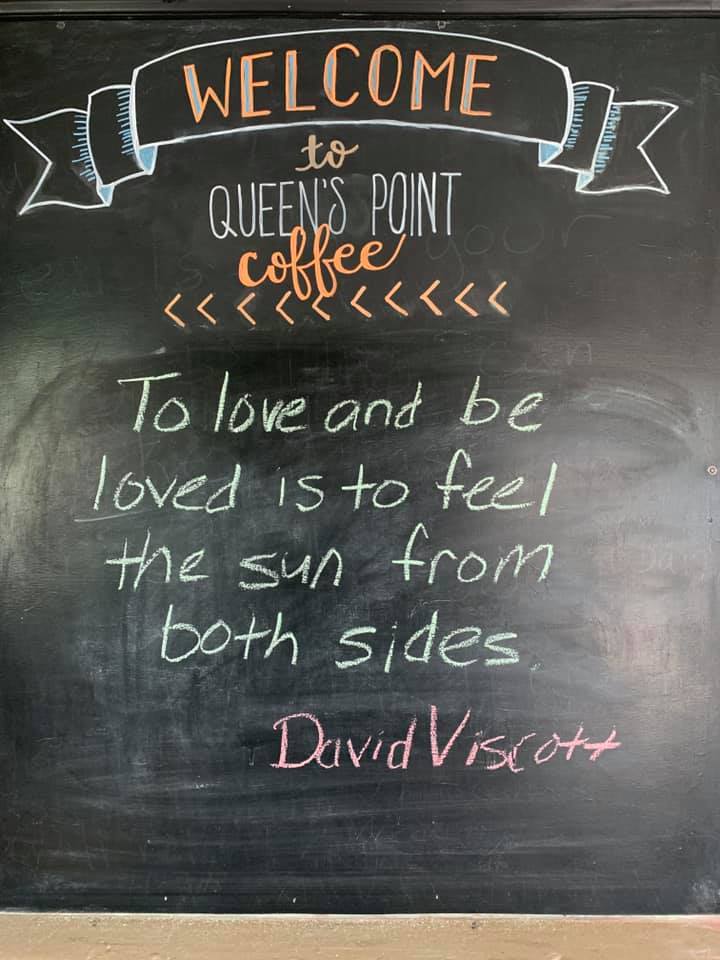 WELCOME
to
QUEEN'S POINT
coffee
<<<<<<<<<<
To love and be
loved is to feel
the sun from
both sides.
David Viscott